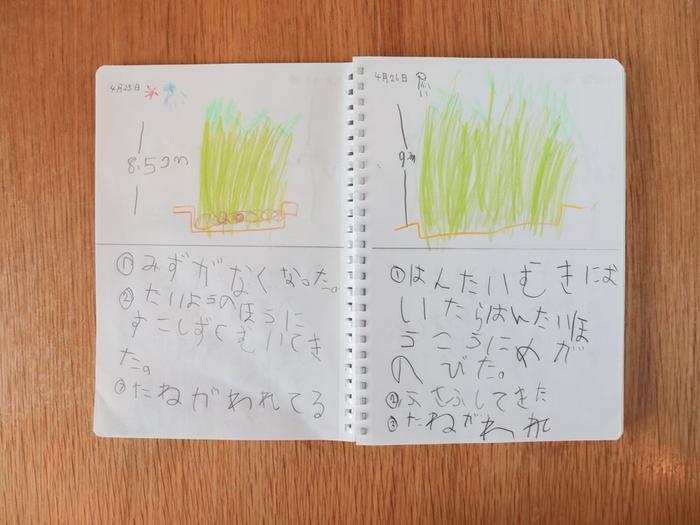 4月25日
8.5cm
① みずがなくなった。
② たいようのほうに
すこしずつむいてき
た。
③ たねがわれてる
4月26日
9cm
① はんたいむきにお
いたらはんたいほ
うこうにめが
のびた。
② ふさふしてきた
③ たねがわれ